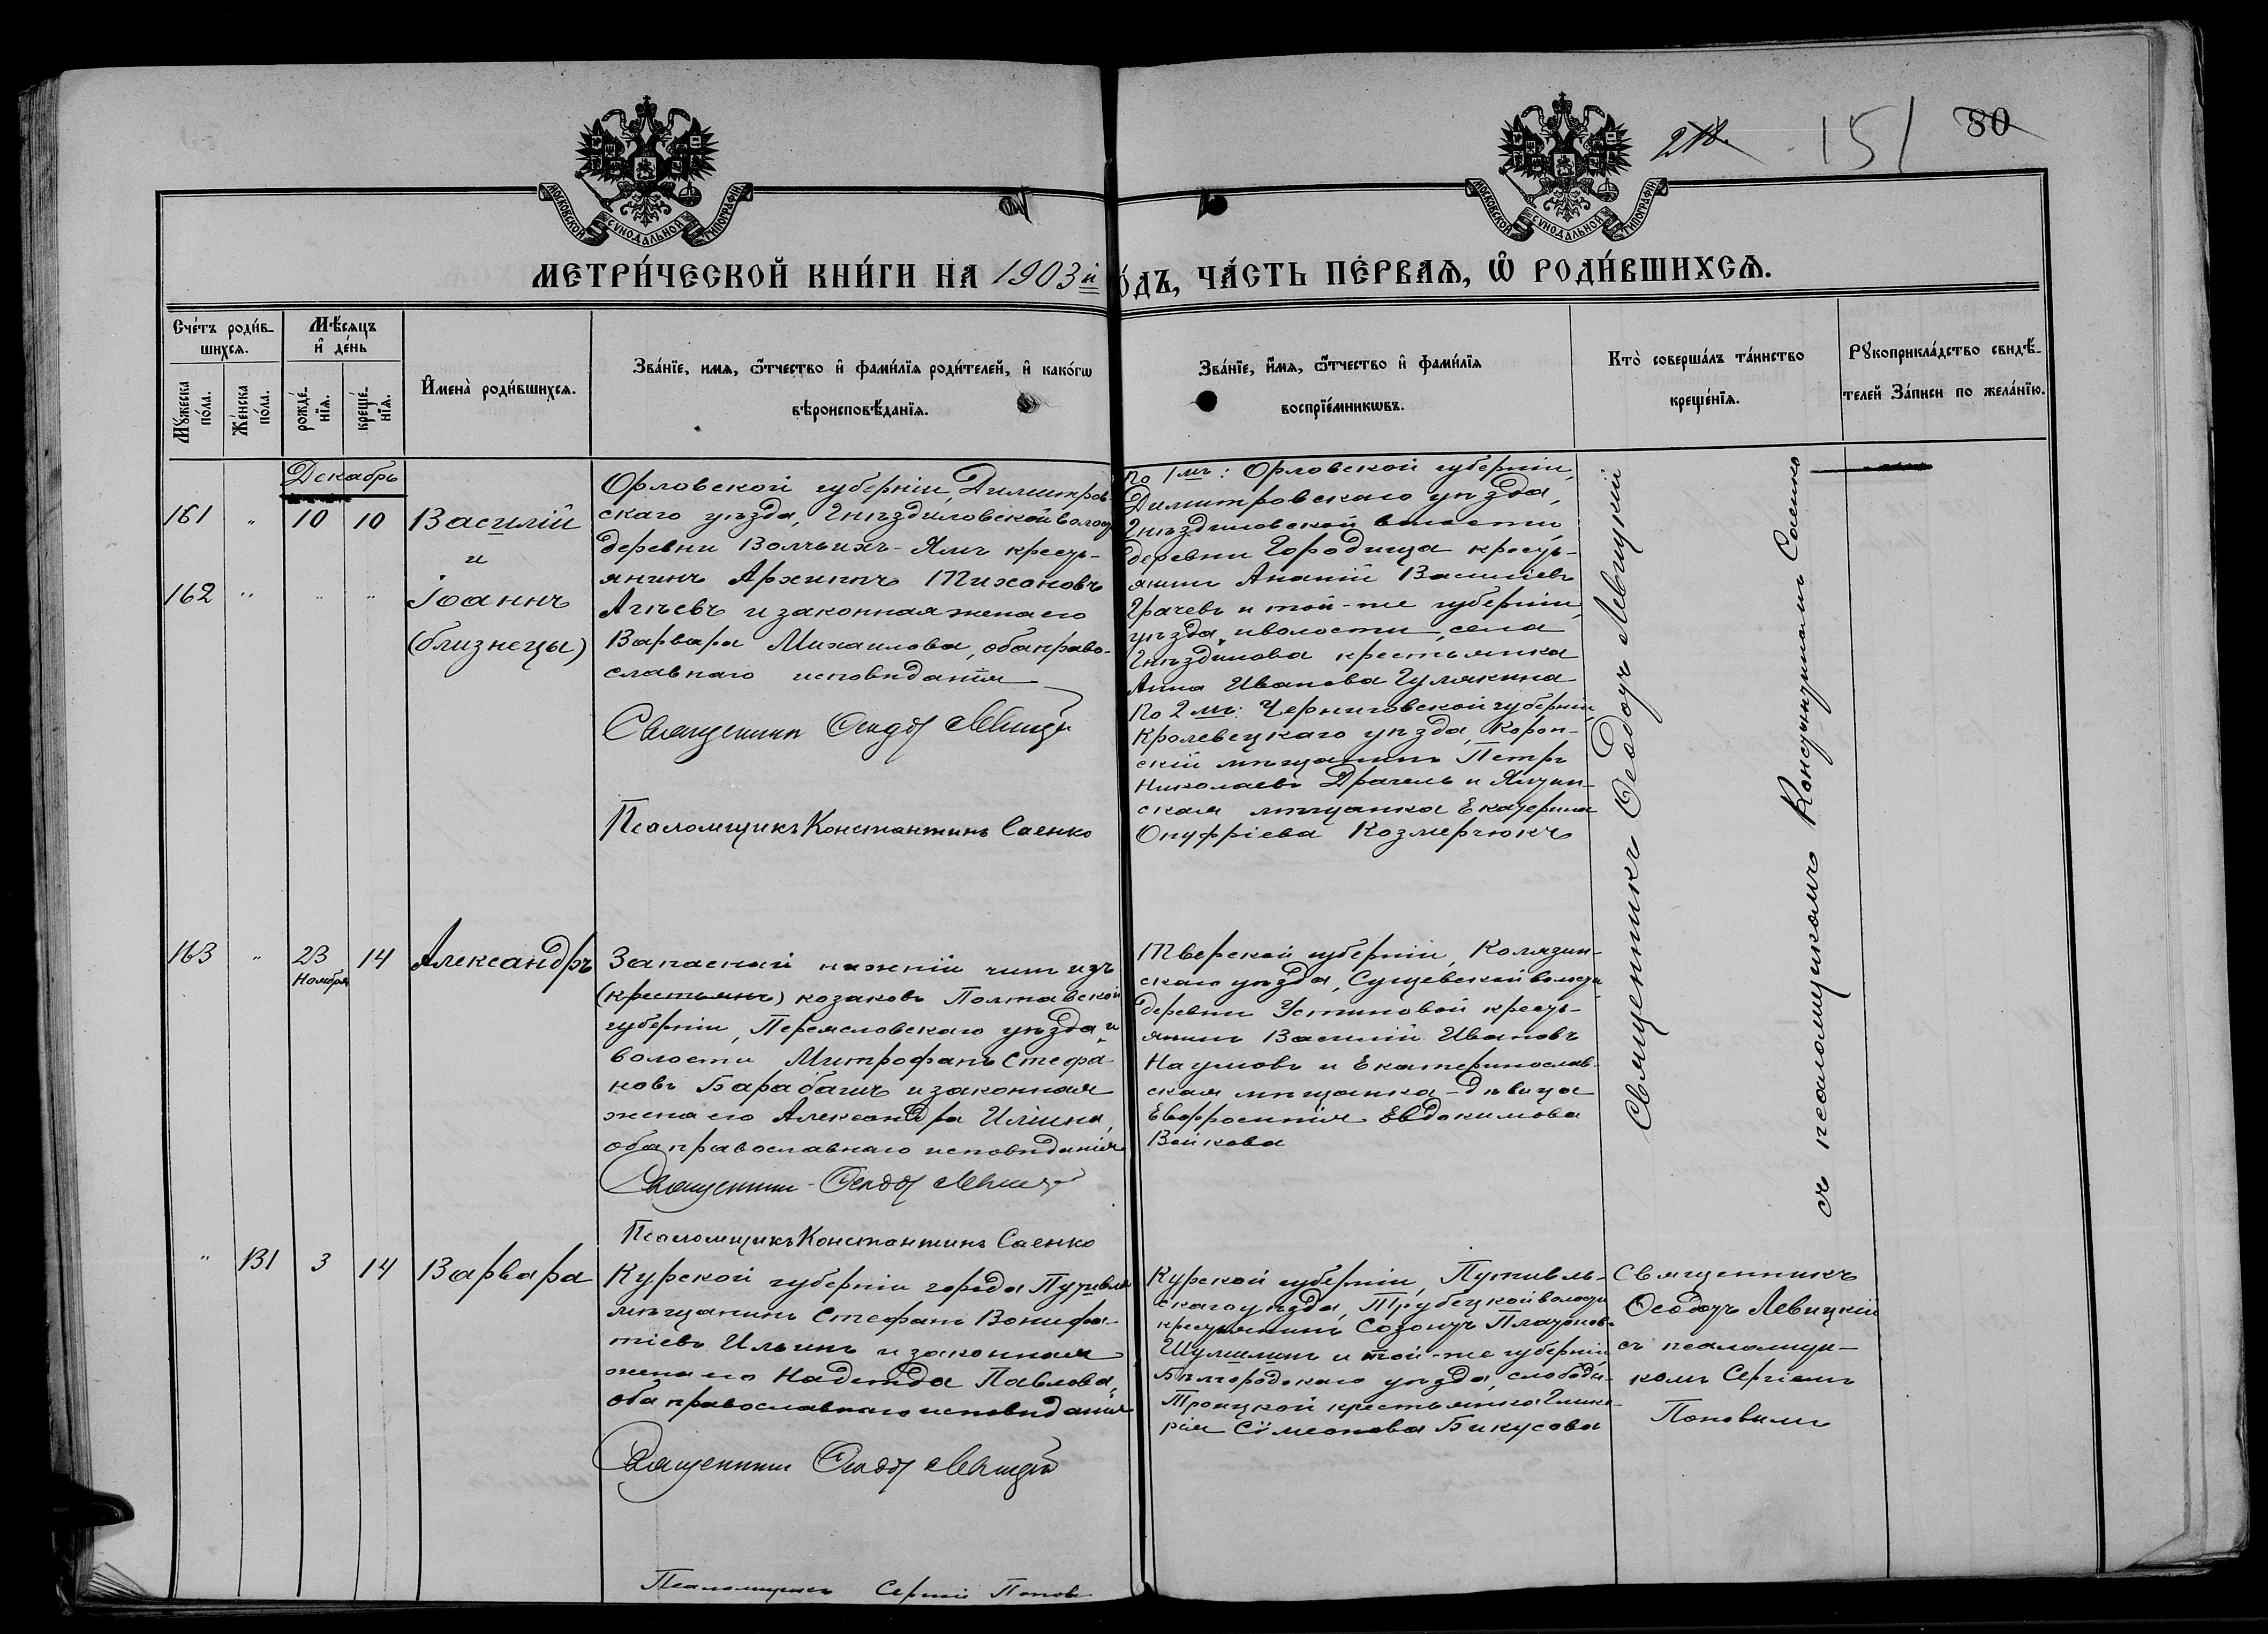 МОСКОВСКОЙ СѴНОДАЛЬНОЙ ТИПОГРАФІИ
МОСКОВСКОЙ СѴНОДАЛЬНОЙ ТИПОГРАФІИ
151
80
МЕТРИ́ЧЕСКОЙ КНИ́ГИ НА 1903й
О́ДЪ, ЧА́СТЬ ПЕ́РВАЯ, Ѡ҆ РОДИ́ВШИХСЯ.
Сче́тъ роди́в-
шихся.
Мꙋжеска по́ла.
Же́нска по́ла.
Мѣ́сяцъ
и҆ де́нь
рожде́-
нїя.
креще́-
нїя.
И҆мена̀ роди́вшихся.
Зва́нїе, имя, ѻ҆́тчество и҆ фами́лїя роди́телей, и҆ како́гѡ
вѣроисповѣ́данїя.
Зва́нїе, и҆́мя, ѻ҆́тчество и҆ фами́лїя
воспрїе́мникѡвъ.
Кто̀ соверша́лъ та́инство
креще́нїя.
Рꙋкоприкла́дство свидѣ́-
телей За́писи по жела́нїю.
Декабрь
161 " 10 10 Василій
и
162 " " " Іоаннъ
(близнецы)
Орловской губерніи, Димитров-
скаго уѣзда, Гнѣздиловской волос
деревни Волчьихъ-Ямъ кресть-
янинъ Архиппъ Тихоновъ
Агѣевъ и законная жена его
Варвара Михаилова, оба право-
славнаго исповѣданія
Священникъ Ѳеодоръ Левицкій
Псаломщикъ Константинъ Саенко
По 1мъ: Орловской губерніи,
Димитровскаго уѣзда,
Гнѣздиловской волости,
деревни Городища кресть-
янинъ Ананій Василіевъ
Грачевъ и той-же губерніи,
уѣзда, и волости, села
Гнѣздилова крестьянка
Анна Иванова Гулякина
По 2мъ: Черниговской губерніи,
Кролевецкаго уѣзда, Короп-
скій мѣщанинъ Петръ
Николаевъ Драчель и
ская мѣщанка Екатерина
Онуфріева Козмерчюкъ
Священникъ Ѳеодоръ Левицкій
съ псаломщикомъ Константиномъ Саенко
163 " 23 14 Александръ
Ноября
Запасный нижній чинъ изъ
(крестьянъ) козаковъ Полтавской
губерніи, Переяславскаго уѣзда и
волости Митрофанъ Стефа-
новъ Барабашъ и законная
жена его Александра Иліина,
оба православнаго исповѣданія
Священникъ Ѳеодоръ Левицкій
Псаломщикъ Константинъ Саенко
Тверской губерніи, Колязин-
скаго уѣзда, Сущевской волости
деревни Устиновой кресть-
янинъ Василій Ивановъ
Наумовъ и Екатеринослав-
ская мѣщанка-дѣвица
Евфросинія Евдокимова
Войкова
" 131 3 14 Варвара
Курской губерніи города Путивля
мѣщанинъ Стефанъ Вонифа-
тіевъ Ильинъ и законная
жена его Надежда Павлова,
оба православнаго исповѣданія
Священникъ Ѳеодоръ Левицкій
Псаломщикъ Сергій Поповъ
Курской губерніи, Путивль-
скаго уѣзда, Трубецкой волости
крестьянинъ Созонтъ Платонов-
Шумилинъ и той-же губерніи,
Бѣлгородскаго уѣзда, слободы
Троицкой крестьянка Глике-
рія Сѵмеонова Бикусова
Священникъ
Ѳеодоръ Левицкій
съ псаломщи-
комъ Сергіемъ
Поповымъ